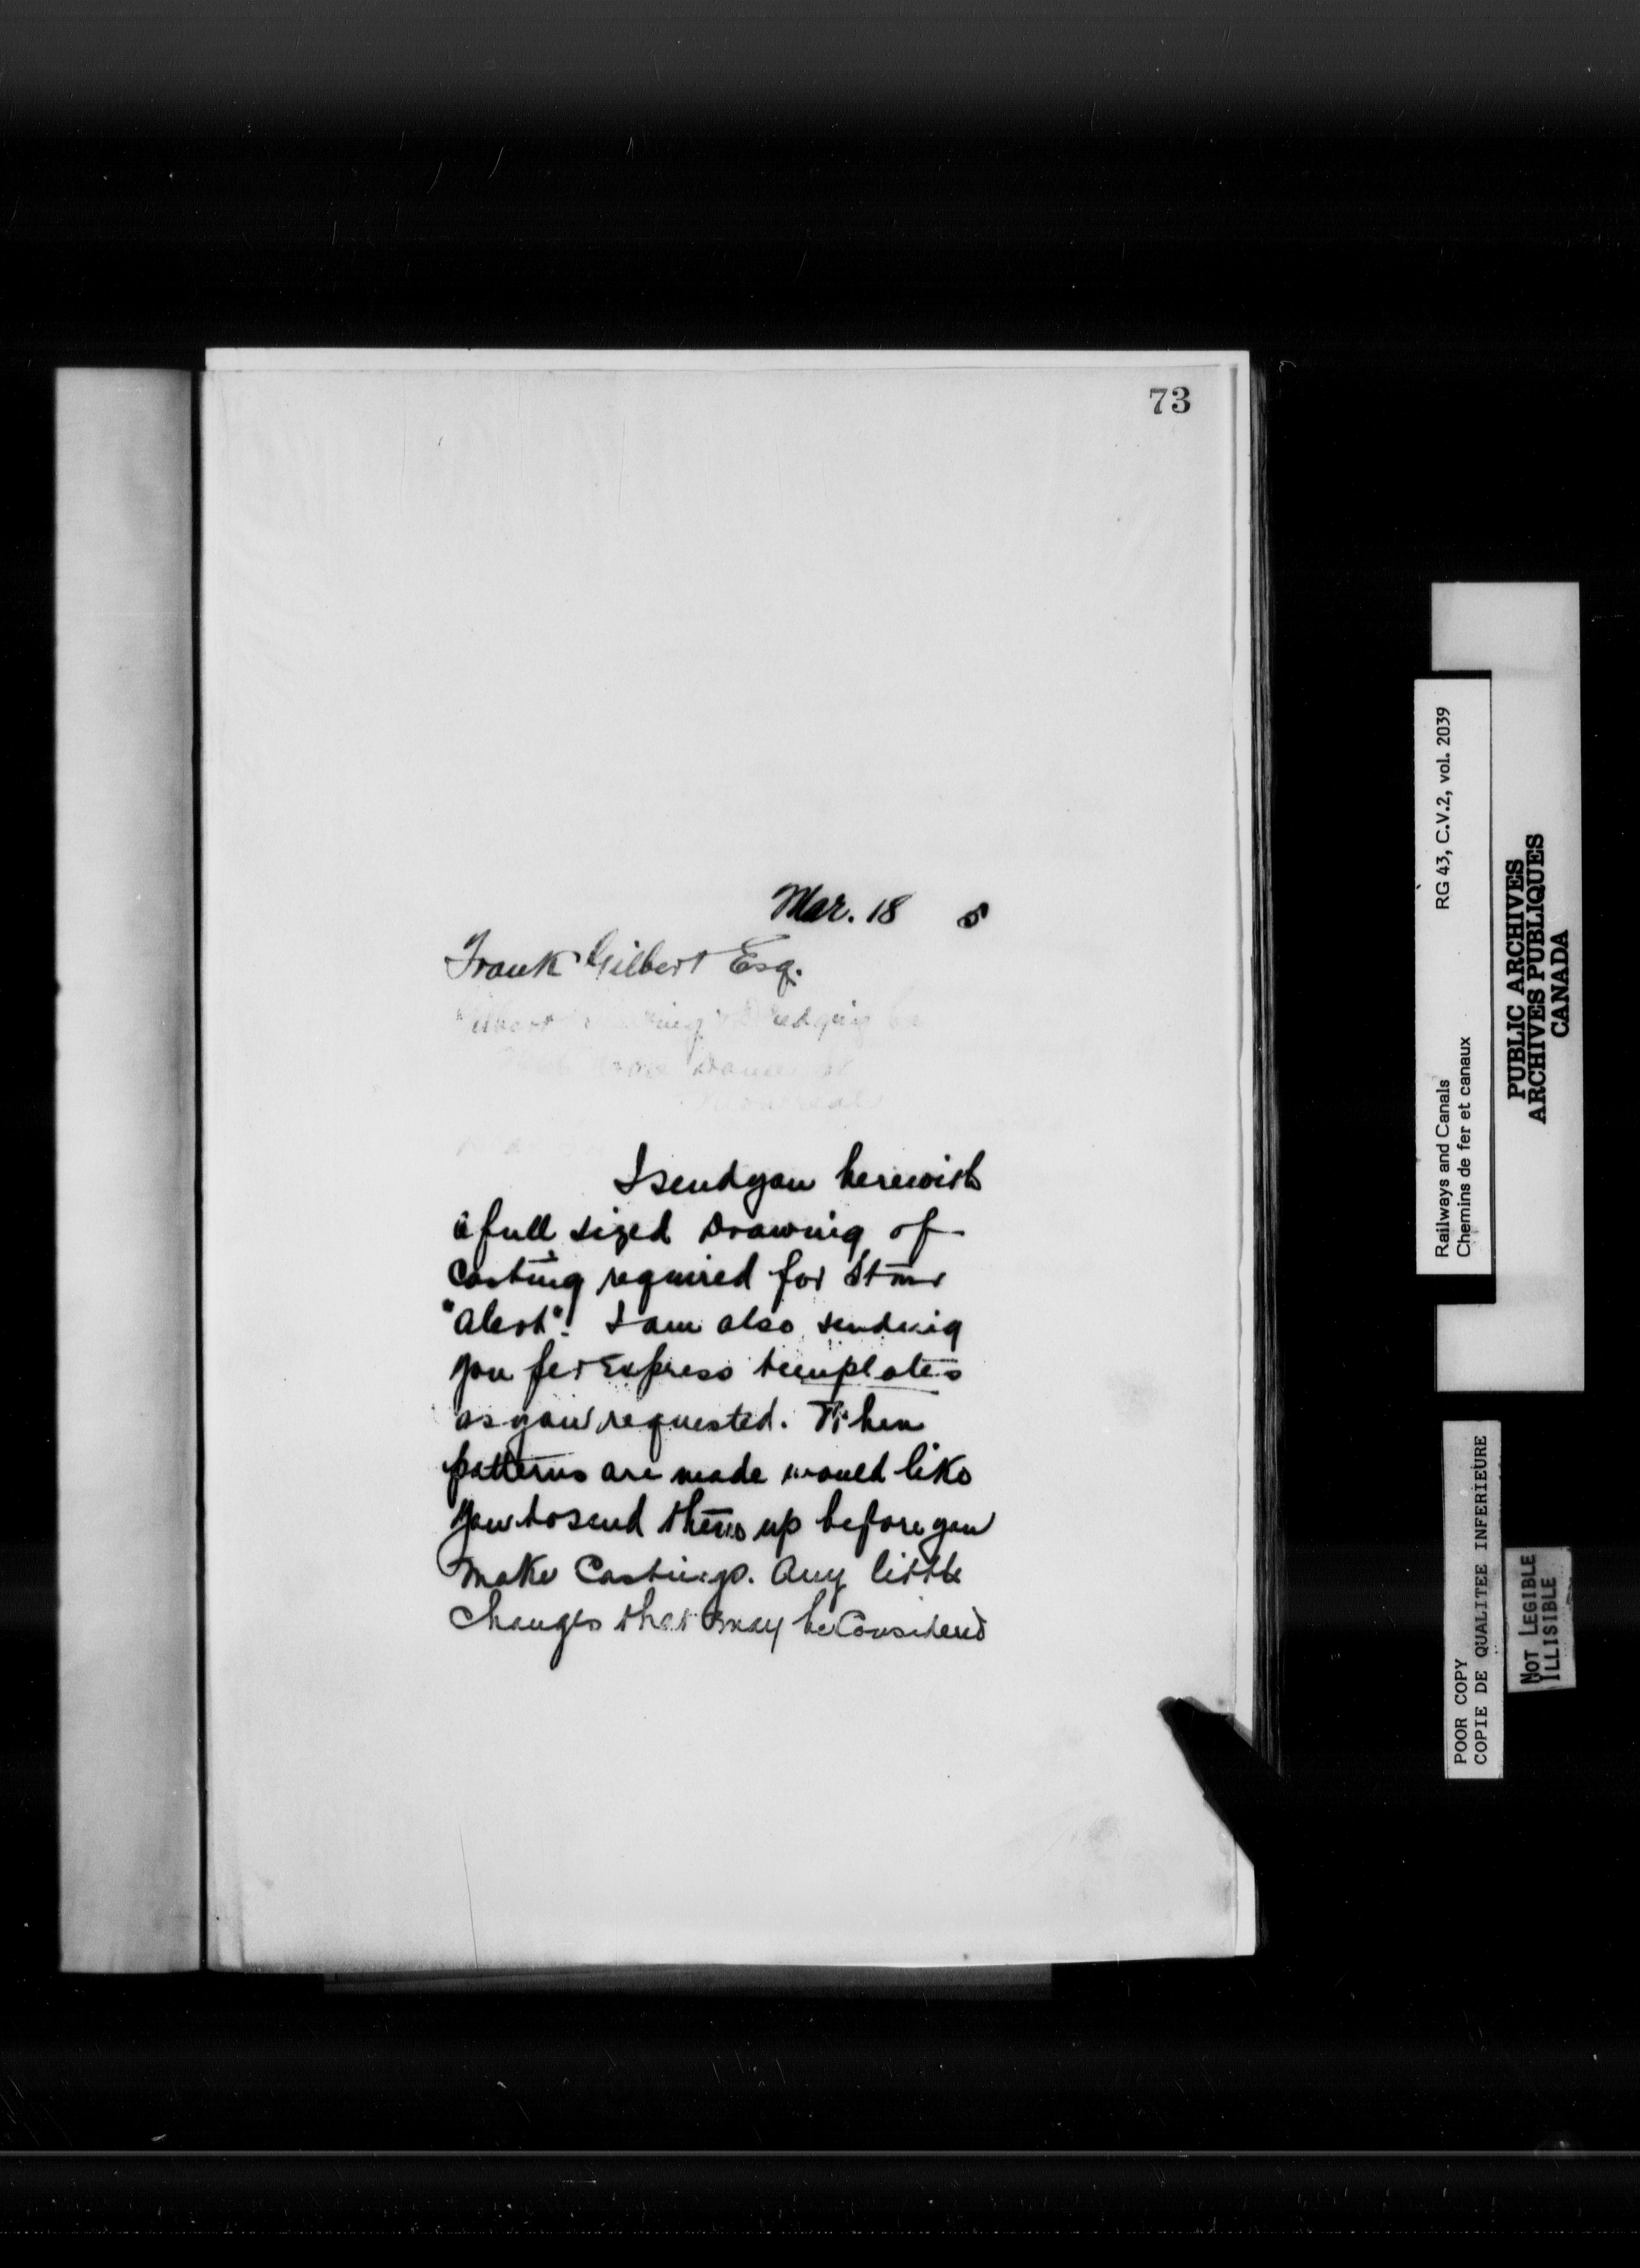 73
Mar. 18 5
Frank Gilbert Esq.
Gilbert Dredging Co
Montreal
I send you herewith
a full sized Drawing of
Casting required for Stmr
"Alert". I am also sending
you per Express templates
as you requested. When
patterns are made would like
you to send them up before you
make Castings. Any little
Changes that may be Considered
Railways and Canals RG 43, C.V.2, vol. 2039
Chemins de fer et canaux
PUBLIC ARCHIVES
ARCHIVES PUBLIQUES
CANADA
POOR COPY
COPIE DE QUALITEE INFERIEURE
NOT LEGIBLE
ILLISIBLE